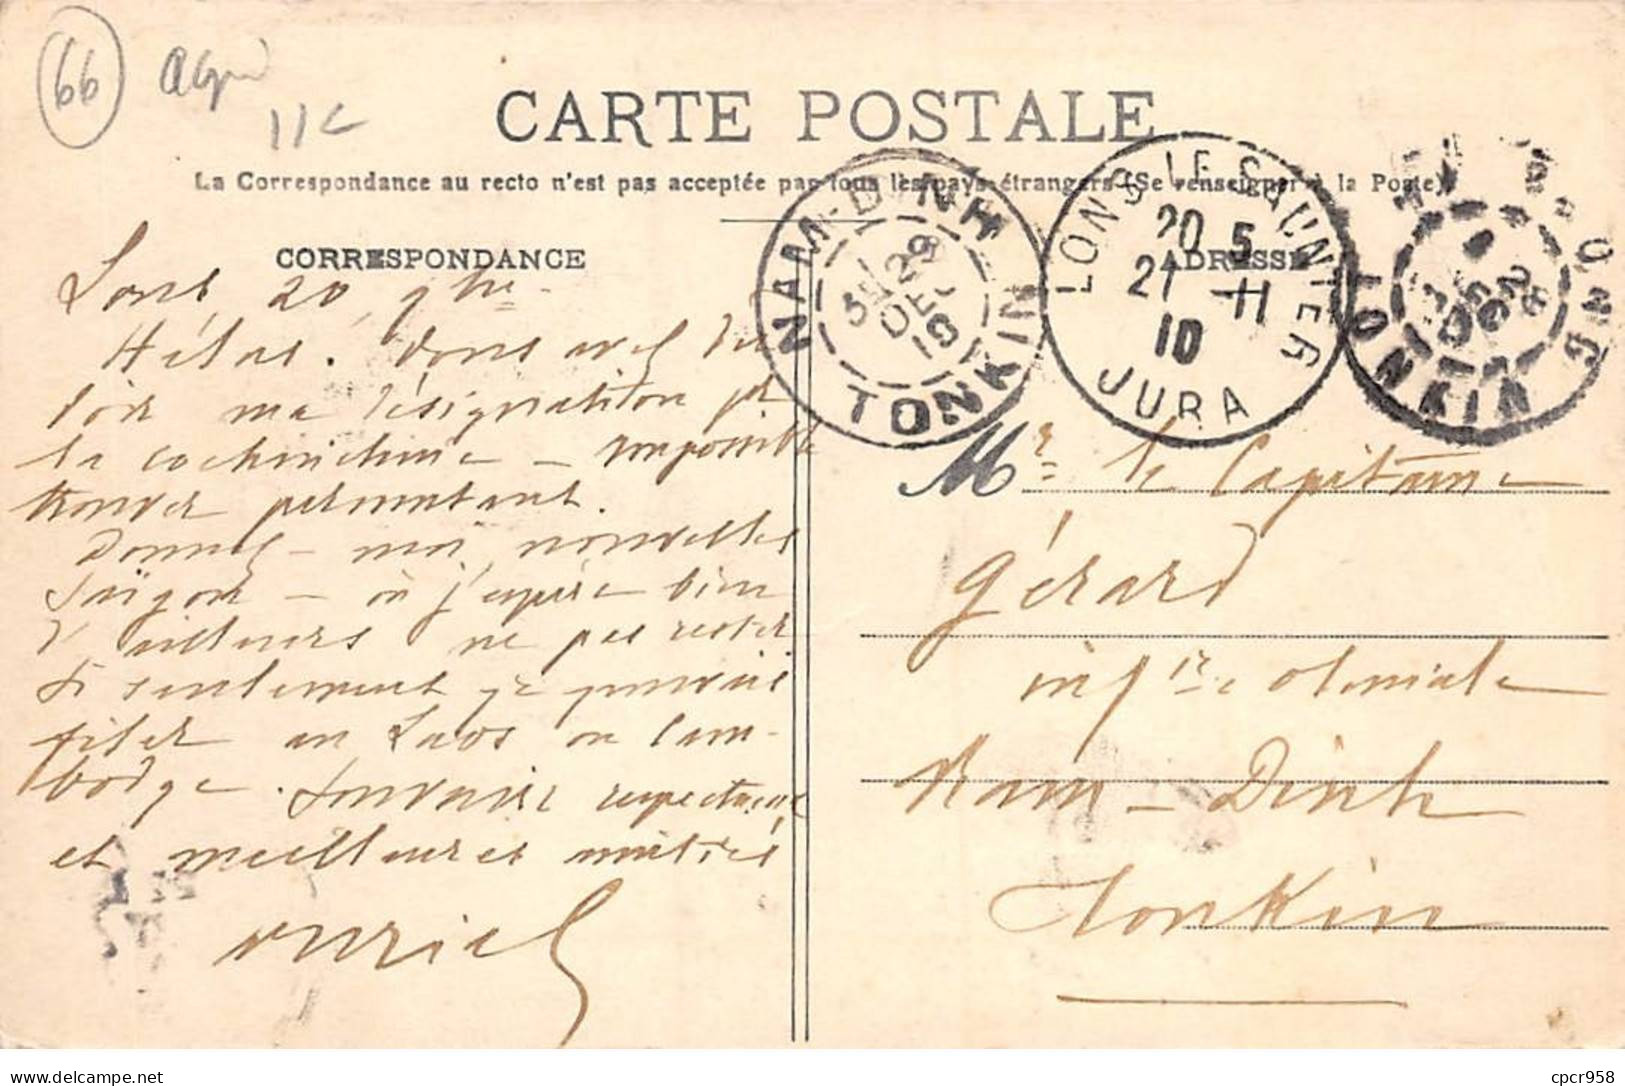 66 agri
11c
CARTE POSTALE
La Correspondance au recto n'est pas acceptée par tous les pays étrangers (Se renseigner à la Poste)
CORRESPONDANCE
ADRESSE
NAM-DINH
28
DEC
10
TONKIN
LONS LE SAUNIER
20 5
21 -11
10
JURA
TONKIN
Lons, 20 9bre
Hélas. Vous avez dû
voir ma désignation pr
la cochinchine – impossible
trouver permutant.
Donnez – moi nouvelles
Saïgon – où j'espère bien
d'ailleurs ne pas rester
Si seulement je pouvais
filer au Laos ou Cam-
bodge. Souvenir respectueux
et meilleures amitiés
Mr le Capitaine
Gérard
infie coloniale
Nam – Dinh
Tonkin
cpcr958